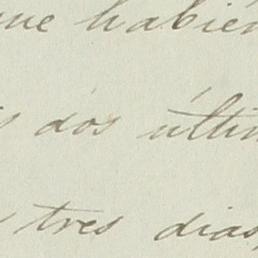 que habién
dos últim
tres dias,